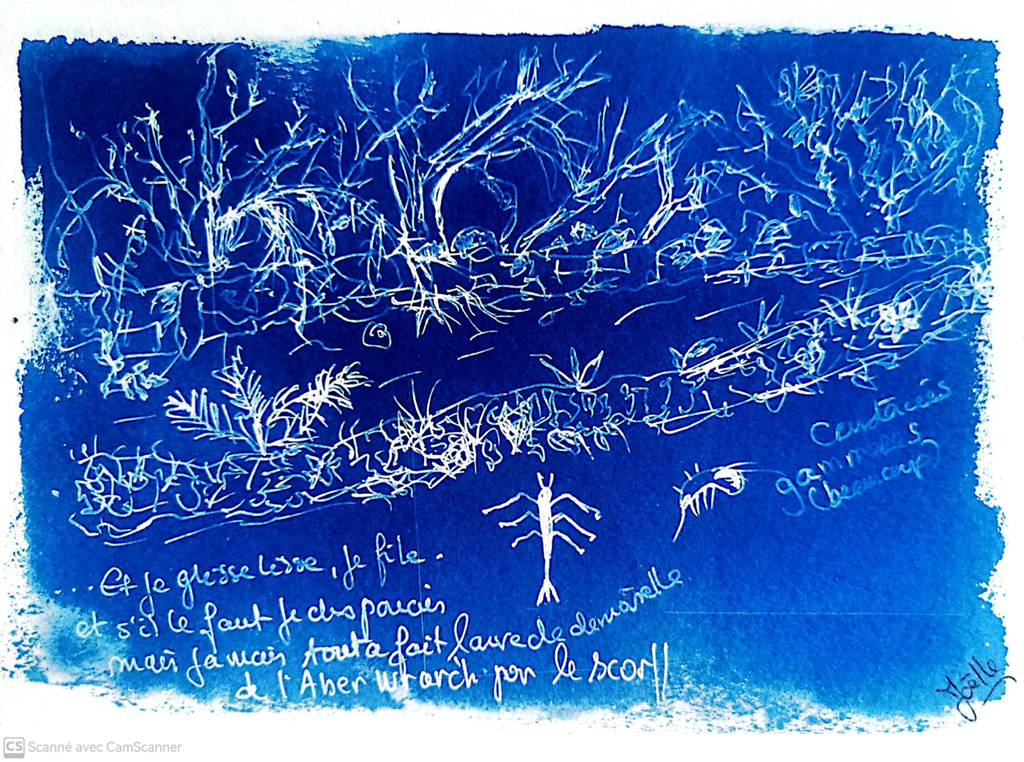 Crustacés
gammares
(beaucoup)
... Et je glisse lisse, je file.
et s'il le faut je disparais
mais jamais tout à fait larve de demoiselle
de l'Aber Wrarch por le scorff
Joëlle
CS Scanné avec CamScanner